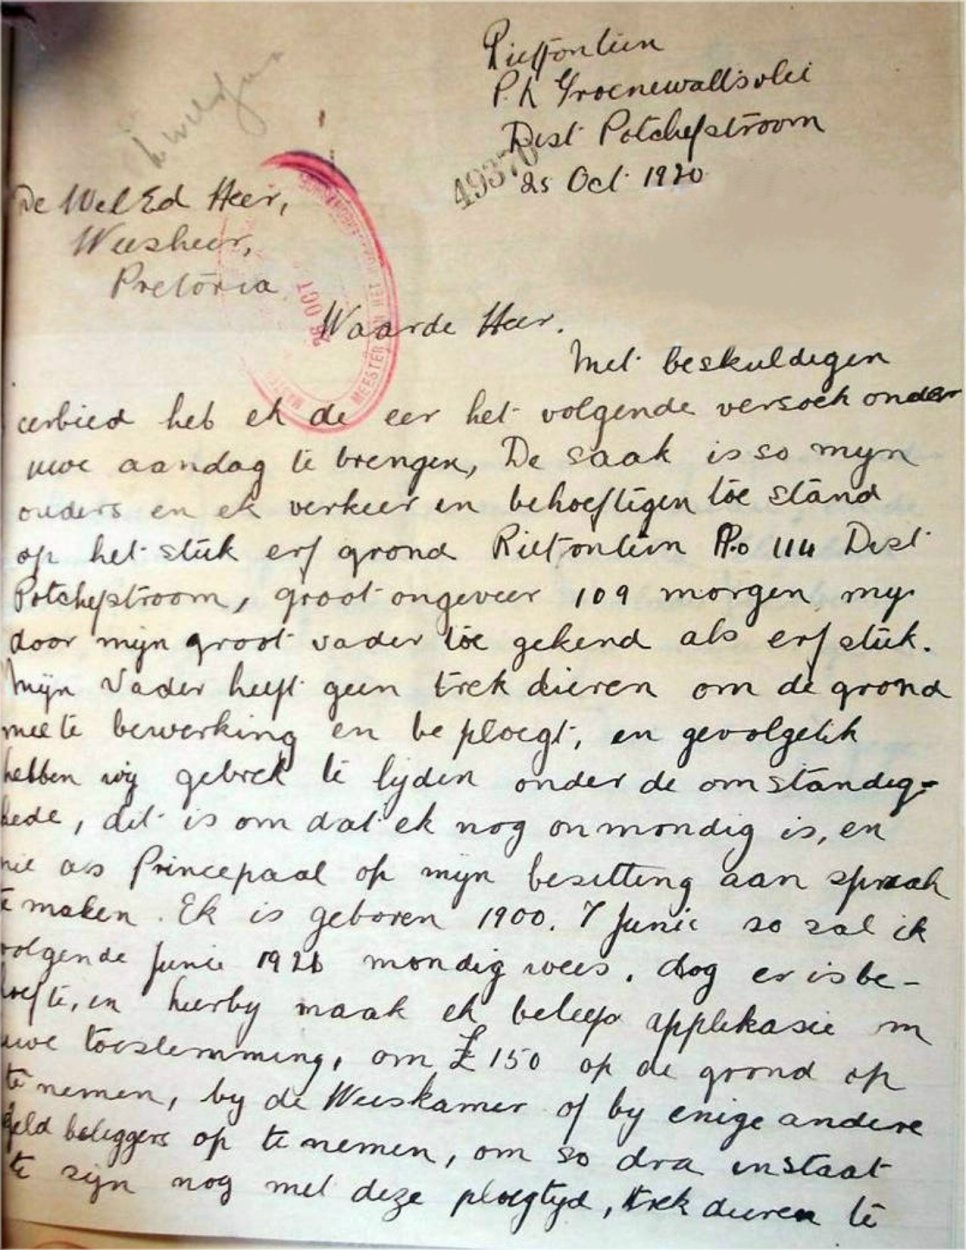 Rietfontein
P.k Groenewaldsvlei
Dist Potchefstroom
49370
25 Oct. 1920
De Wel Ed Heer,
Weesheer,
Pretoria
26 OCT
MEESTER VAN HET
Waarde Heer.
Met beskuldegen
eerbied heb ek de eer het volgende versoek onder
uwe aandag te brengen, De saak is so myn
ouders en ek verkeer in behoeftigen toe stand
op het stuk erf grond Rietfontein No 114 Dist
Potchefstroom, groot ongeveer 109 morgen, my
door mijn groot vader toe gekend als erf stuk.
Mijn Vader heeft geen trek dieren om de grond
mee te bewerking en be ploegt, en gevolgelik
hebben wy gebrek te lijden onder de om standeg-
hede, dit is om dat ek nog onmondig is, en
nie as Princepaal op mijn besitting aan spraak
te maken. Ek is geboren 1900. 7 Junie so zal ik
volgende Junie 1921 mondig wees. dog er is be-
hoefte, en hierby maak ek beleep applikasie om
uwe toestemming, om £150 op de grond op
te nemen, by de Weeskamer of by enige andere
geld beleggers op te nemen, om so dra instaat
te zijn nog met deze ploegtyd, trek dieren te